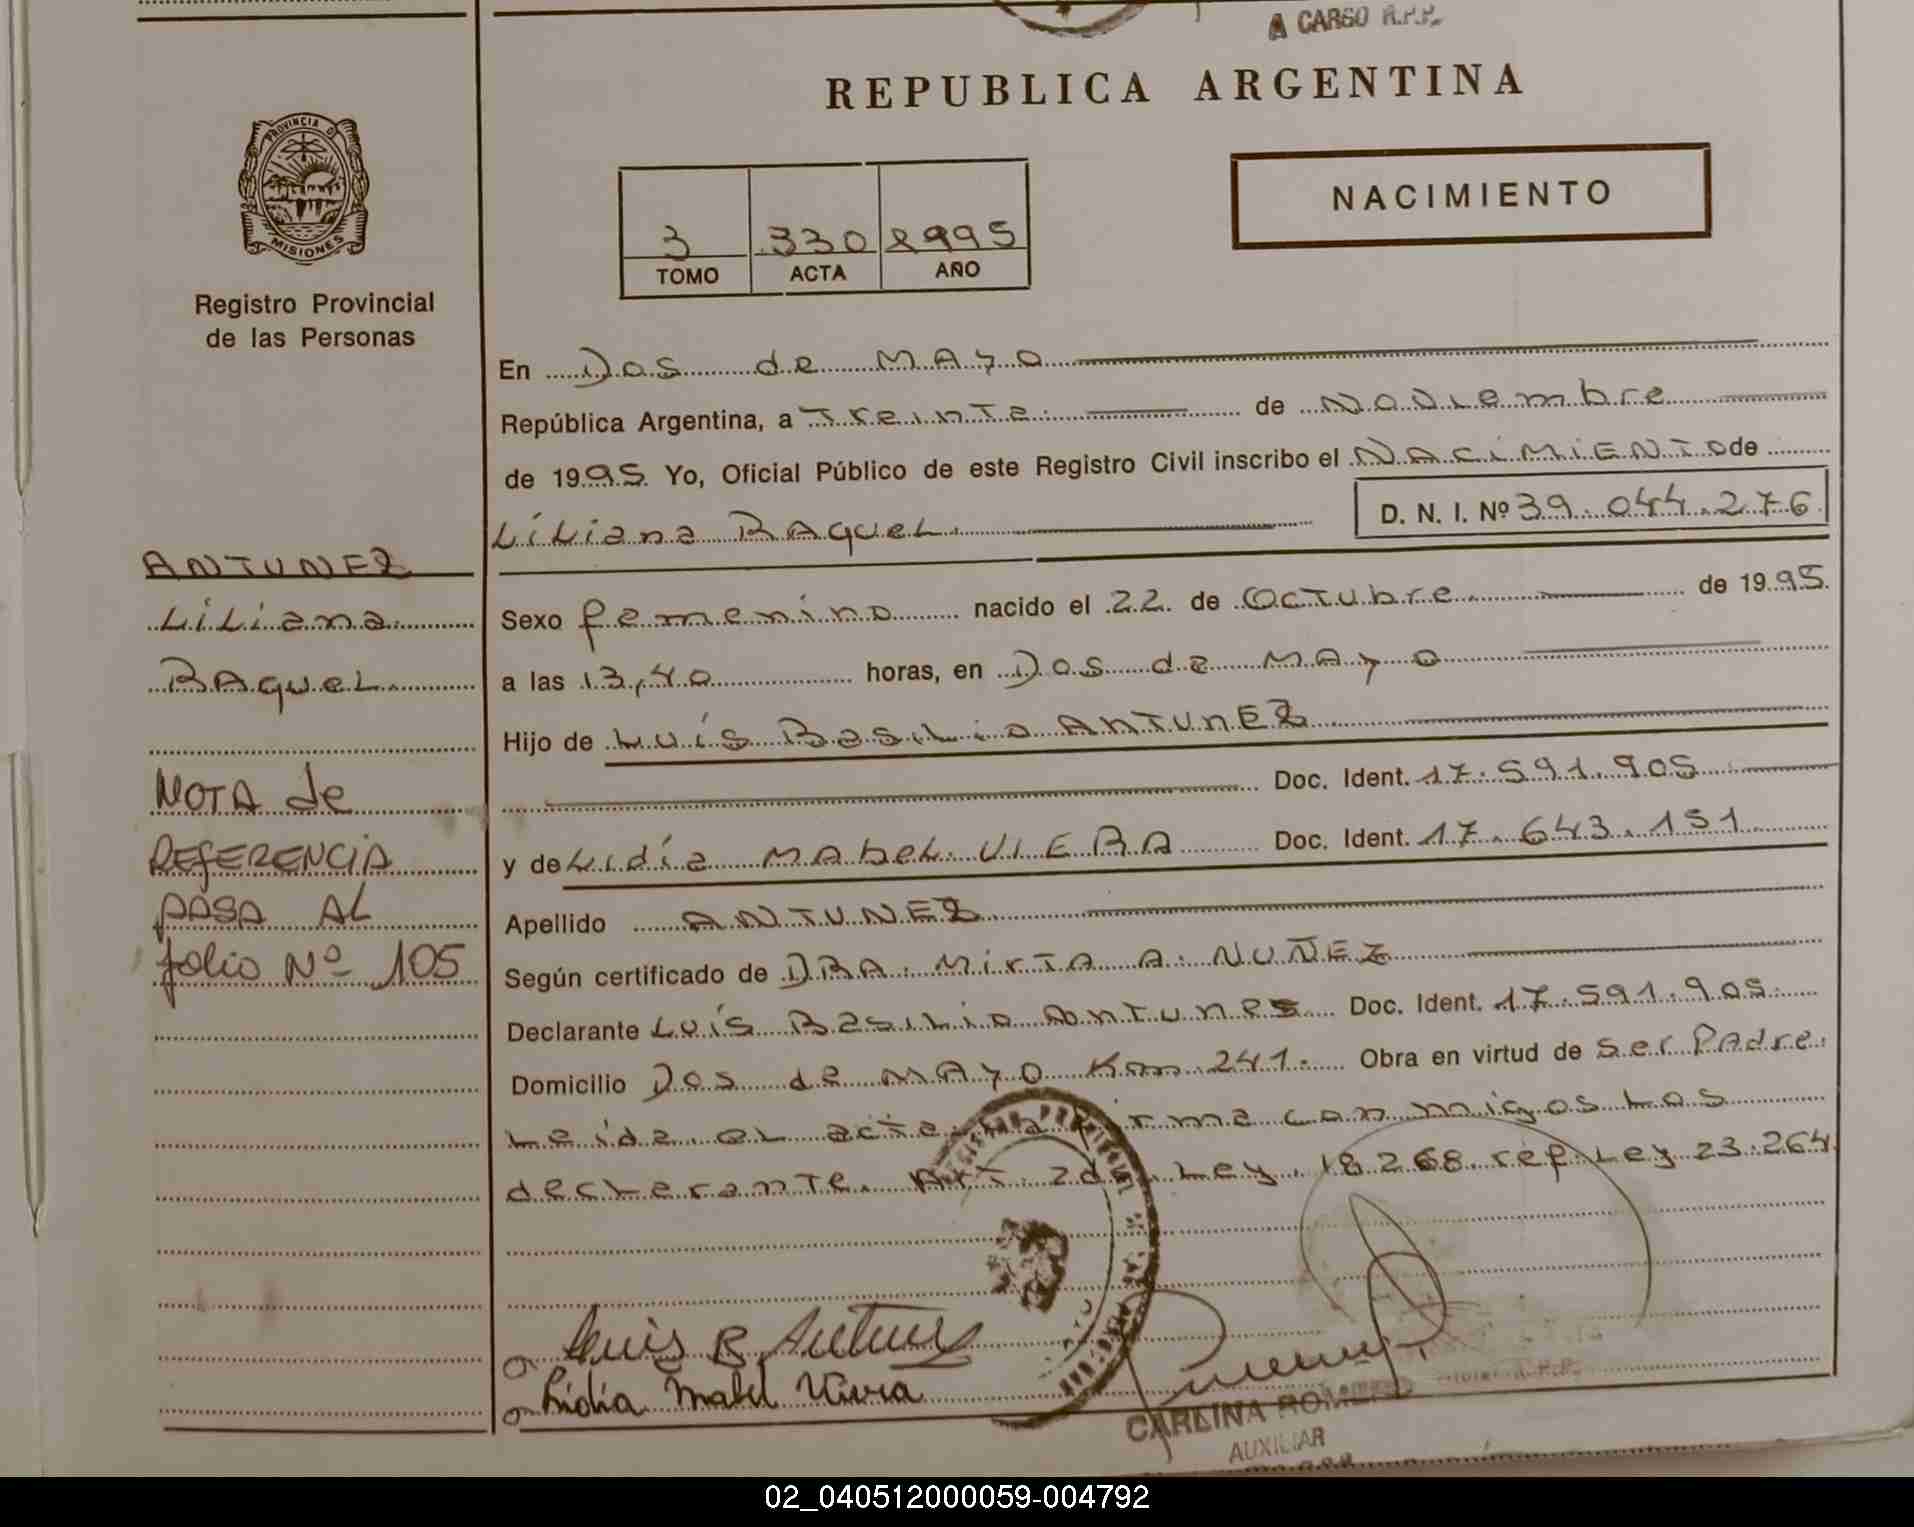 A CARGO R.P.P.
REPUBLICA ARGENTINA
PROVINCIA DE
MISIONES
Registro Provincial
de las Personas
NACIMIENTO
3 330 1995
TOMO ACTA AÑO
En Dos de MAYO
República Argentina, a Treinta de Noviembre
de 1995 Yo, Oficial Público de este Registro Civil inscribo el NACIMIENTO de
Liliana RAquel D. N. I. Nº 39.044.276
ANTUNEZ
Liliana
RAquel
NOTA de
REFERENCIA
PASA AL
folio Nº 105
Sexo femenino nacido el 22 de Octubre de 1995
a las 13,40 horas, en Dos de MAyo
Hijo de Luís Basilio ANTUNEZ
Doc. Ident. 17.591.905
y de Lidia MAbel VIERA Doc. Ident. 17.643.151
Apellido ANTUNEZ
Según certificado de DRA. MirTA A. NUÑEZ
Declarante Luís Basilio Antunes Doc. Ident. 17.591.905
Domicilio Dos de MAyo Km 241. Obra en virtud de ser PAdre.
Leida el acta la firma con migos Los
declarante. Art. 2d Ley 18.268 ref. Ley 23.264
Luis B Antunes
Lidia Mabel Viera
CARLINA ROMERO
AUXILIAR
02_040512000059-004792